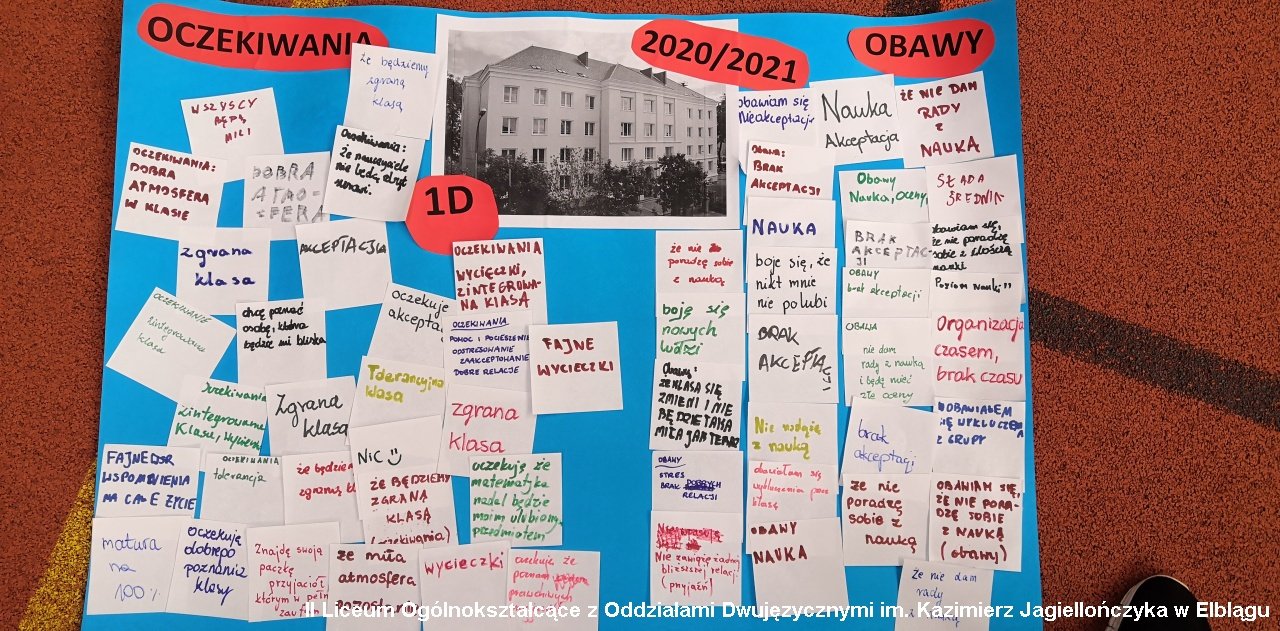 OCZEKIWANIA
2020/2021
OBAWY
1D
że będziemy
zgraną
klasą
WSZYSCY
BĘDĄ
MILI
Oczekiwania:
że nauczyciele
nie będą zbyt
surowi.
OCZEKIWANIA:
DOBRA
ATMOSFERA
W KLASIE
DOBRA
ATMO-
SFERA
zgrana
klasa
AKCEPTACJA
OCZEKIWANIA
WYCIECZKI,
ZINTEGROWA-
NA KLASA
OCZEKIWANIE
zintegrowana
klasa
chcę poznać
osobę, która
będzie mi bliska
oczekuje
akceptac
OCZEKIWANIA
POMOC I POCIESZENIE
ODSTRESOWANIE
ZAAKCEPTOWANIE
DOBRE RELACJE
FAJNE
WYCIECZKI
Oczekiwania
zintegrowane
Klasa, Wyciecz
Zgrana
klasa
Tolerancyjna
klasa
zgrana
klasa
FAJNE
WSPOMNIENIA
NA CAŁE ŻYCIE
OCZEKIWANIA
tolerancja
że będzie
zgraną kl
NIC
ŻE BĘDZIEMY
ZGRANĄ
KLASĄ
(oczekiwania)
oczekuję że
matematyka
nadal będzie
moim ulubionym
przedmiotem
matura
na
100%
oczekuję
dobrego
poznania
klasy
Znajdę swoją
paczkę
przyjaciół
którym w pełni
zauf
że miła
atmosfera
pozosta
wycieczki
oczekuje że
poznam
prawdziwych
obawiam się
Nieakceptacji
Nauka
Akceptacja
że NIE DAM
RADY
Z
NAUKĄ
Obawa:
BRAK
AKCEPTACJI
Obawy
Nauka, oceny,
SŁABA
ŚREDNIA
NAUKA
BRAK
AKCEPTAC-
JI
obawiam się,
że nie poradzę
sobie z ilością
nauki
że nie
poradzę sobie
z nauką
boje się, że
nikt mnie
nie polubi
OBAWY
brak akceptacji
Poziom nauki
boję się
nowych
ludzi
BRAK
AKCEPTACJI
OBAWA
nie dam
rady z nauką
i będę mieć
złe oceny
Organizacja
czasem,
brak czasu
Obawy:
ŻE KLASA SIĘ
ZMIENI I NIE
BĘDZIE TAKA
MIŁA JAK TERAZ
Nie nadążę
z nauką
brak
akceptacji
OBAWIAŁEM
SIĘ WYKLUCZENIA
Z GRUPY
OBAWY
STRES
BRAK DOBRYCH
RELACJI
obawiałam się
wykluczenia przez
klasę
że nie
poradzę
sobie z
nauką
OBAWIAM SIĘ,
ŻE NIE PORA-
DZĘ SOBIE
Z NAUKĄ
(obawy)
Nie zawiążę żadnej
bliższej relacji
(przyjaźń)
OBAWY
NAUKA
że nie dam
rady
II Liceum Ogólnokształcące z Oddziałami Dwujęzycznymi im. Kazimierz Jagiellończyka w Elblągu